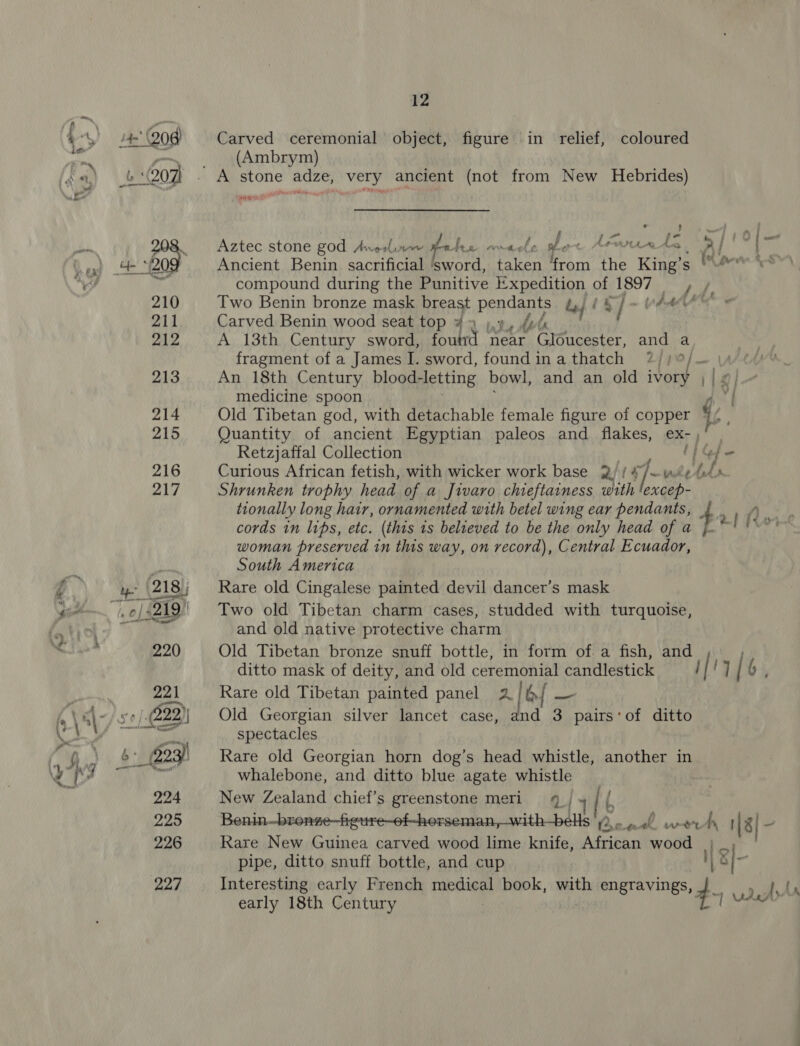 12
206 Carved ceremonial object, figure in relief, coloured
(Ambrym)
207 A stone adze, very ancient (not from New Hebrides)
208 Aztec stone god
209 Ancient Benin sacrificial sword, taken from the King's
compound during the Punitive Expedition of 1897
210 Two Benin bronze mask breast pendants
211 Carved Benin wood seat top
212 A 13th Century sword, found near Gloucester, and a
fragment of a James I. sword, found in a thatch
213 An 18th Century blood-letting bowl, and an old ivory
medicine spoon
214 Old Tibetan god, with detachable female figure of copper
215 Quantity of ancient Egyptian paleos and flakes, ex-
Retzjaffal Collection
216 Curious African fetish, with wicker work base
217 Shrunken trophy head of a Jivaro chieftainess with excep-
tionally long hair, ornamented with betel wing ear pendants,
cords in lips, etc. (this is believed to be the only head of a
woman preserved in this way, on record), Central Ecuador,
South America
218 Rare old Cingalese painted devil dancer's mask
219 Two old Tibetan charm cases, studded with turquoise,
and old native protective charm
220 Old Tibetan bronze snuff bottle, in form of a fish, and
ditto mask of deity, and old ceremonial candlestick
221 Rare old Tibetan painted panel
222 Old Georgian silver lancet case, and 3 pairs of ditto
spectacles
223 Rare old Georgian horn dog's head whistle, another in
whalebone, and ditto blue agate whistle
224 New Zealand chief's greenstone meri
225 Benin bronze figure of horseman, with bells
226 Rare New Guinea carved wood lime knife, African wood
pipe, ditto snuff bottle, and cup
227 Interesting early French medical book, with engravings,
early 18th Century